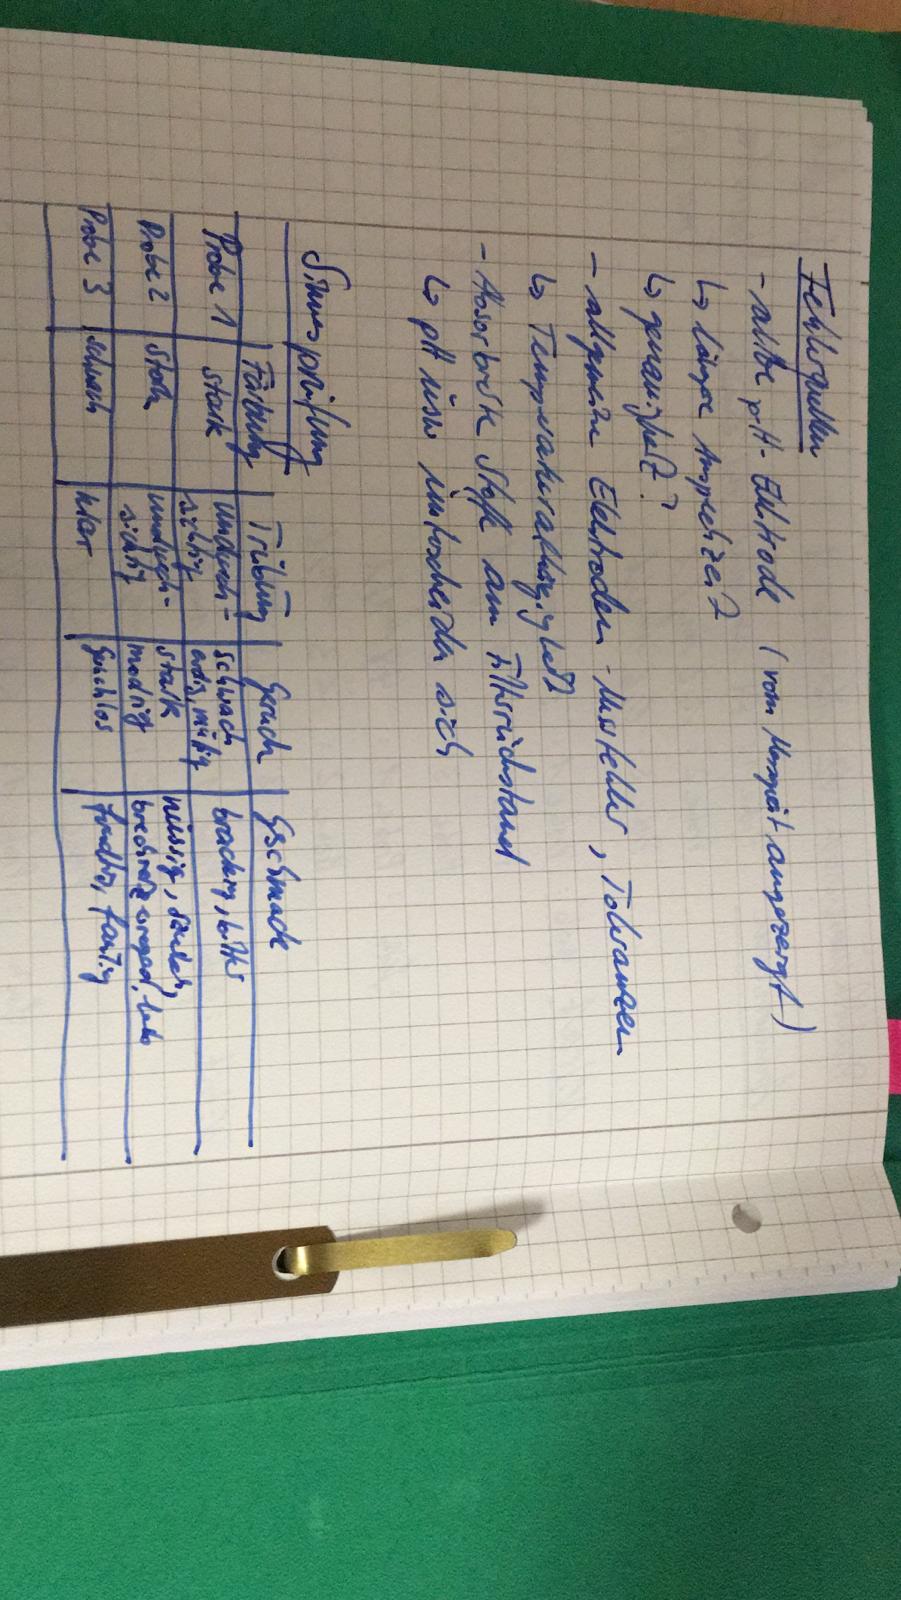 Fehlerquellen
- alte pH-Elektrode (vom Messgerät angezeigt)
↳ längere Ansprechzeit
↳ genauigkeit?
- allgemeine Elektroden-Messfehler, Toleranzen
↳ Temperaturabhängigkeit
- Absorbierte Stoffe am Filterrückstand
↳ pH usw unterscheiden sich
Sinnesprüfung
Färbung Trübung Geruch Geschmack
Probe 1 stark undurch-sichtig schwach, erdig, brackig, bitter
Probe 2 stark undurch-sichtig stark modrig nussig, brechreizerregend,
Probe 3 schwach klar Geruchlos